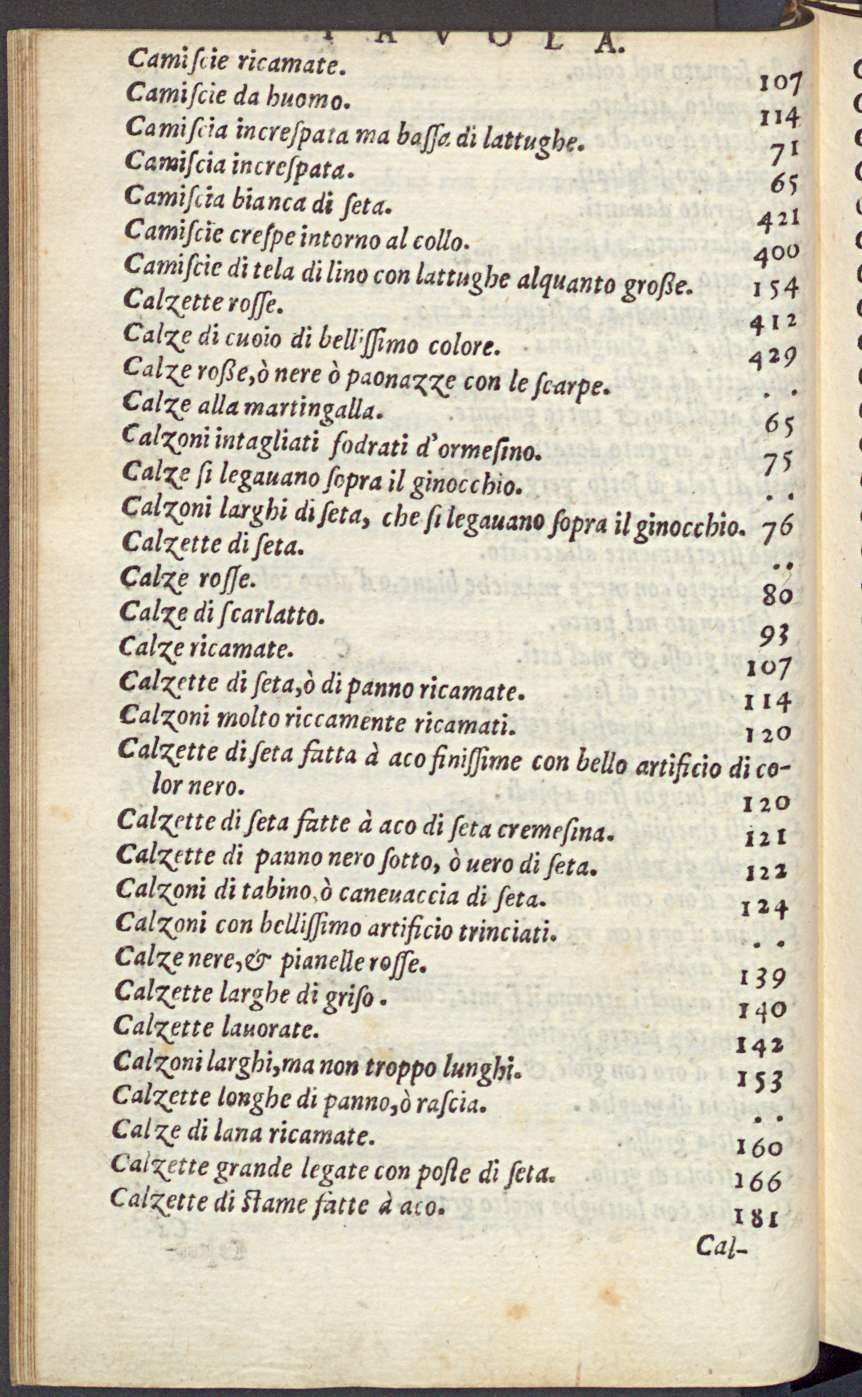 TAVOLA.
Camiſcie ricamate. 107
Camiſcie da huomo. 114
Camiſcia increſpata ma baſſa di lattughe. 71
Camiſcia increſpata. 65
Camiſcia bianca di ſeta. 421
Camiſcie creſpe intorno al collo. 400
Camiſcie di tela di lino con lattughe alquanto große. 154
Calzette roſſe. 412
Calze di cuoio di belliſſimo colore. 429
Calze roße, ò nere ò paonazze con le ſcarpe. . .
Calze alla martingalla. 65
Calzoni intagliati fodrati d'ormeſino. 75
Calze ſi legauano ſopra il ginocchio. . .
Calzoni larghi di ſeta, che ſi legauano ſopra il ginocchio. 76
Calzette di ſeta. . .
Calze roſſe. 80
Calze di ſcarlatto. 93
Calze ricamate. 107
Calzette di ſeta, ò di panno ricamate. 114
Calzoni molto riccamente ricamati. 120
Calzette di ſeta fatta à aco finiſſime con bello artificio di co-
lor nero. 120
Calzette di ſeta fatte à aco di ſeta cremeſina. 121
Calzette di panno nero ſotto, ò uero di ſeta. 122
Calzoni di tabino, ò caneuaccia di ſeta. 124
Calzoni con belliſſimo artificio trinciati. . .
Calze nere, & pianelle roſſe. 139
Calzette larghe di griſo. 140
Calzette lauorate. 142
Calzoni larghi, ma non troppo lunghi. 153
Calzette longhe di panno, ò raſcia. . .
Calze di lana ricamate. 160
Calzette grande legate con poſte di ſeta. 166
Calzette di ſtame fatte à aco. 181
Cal-